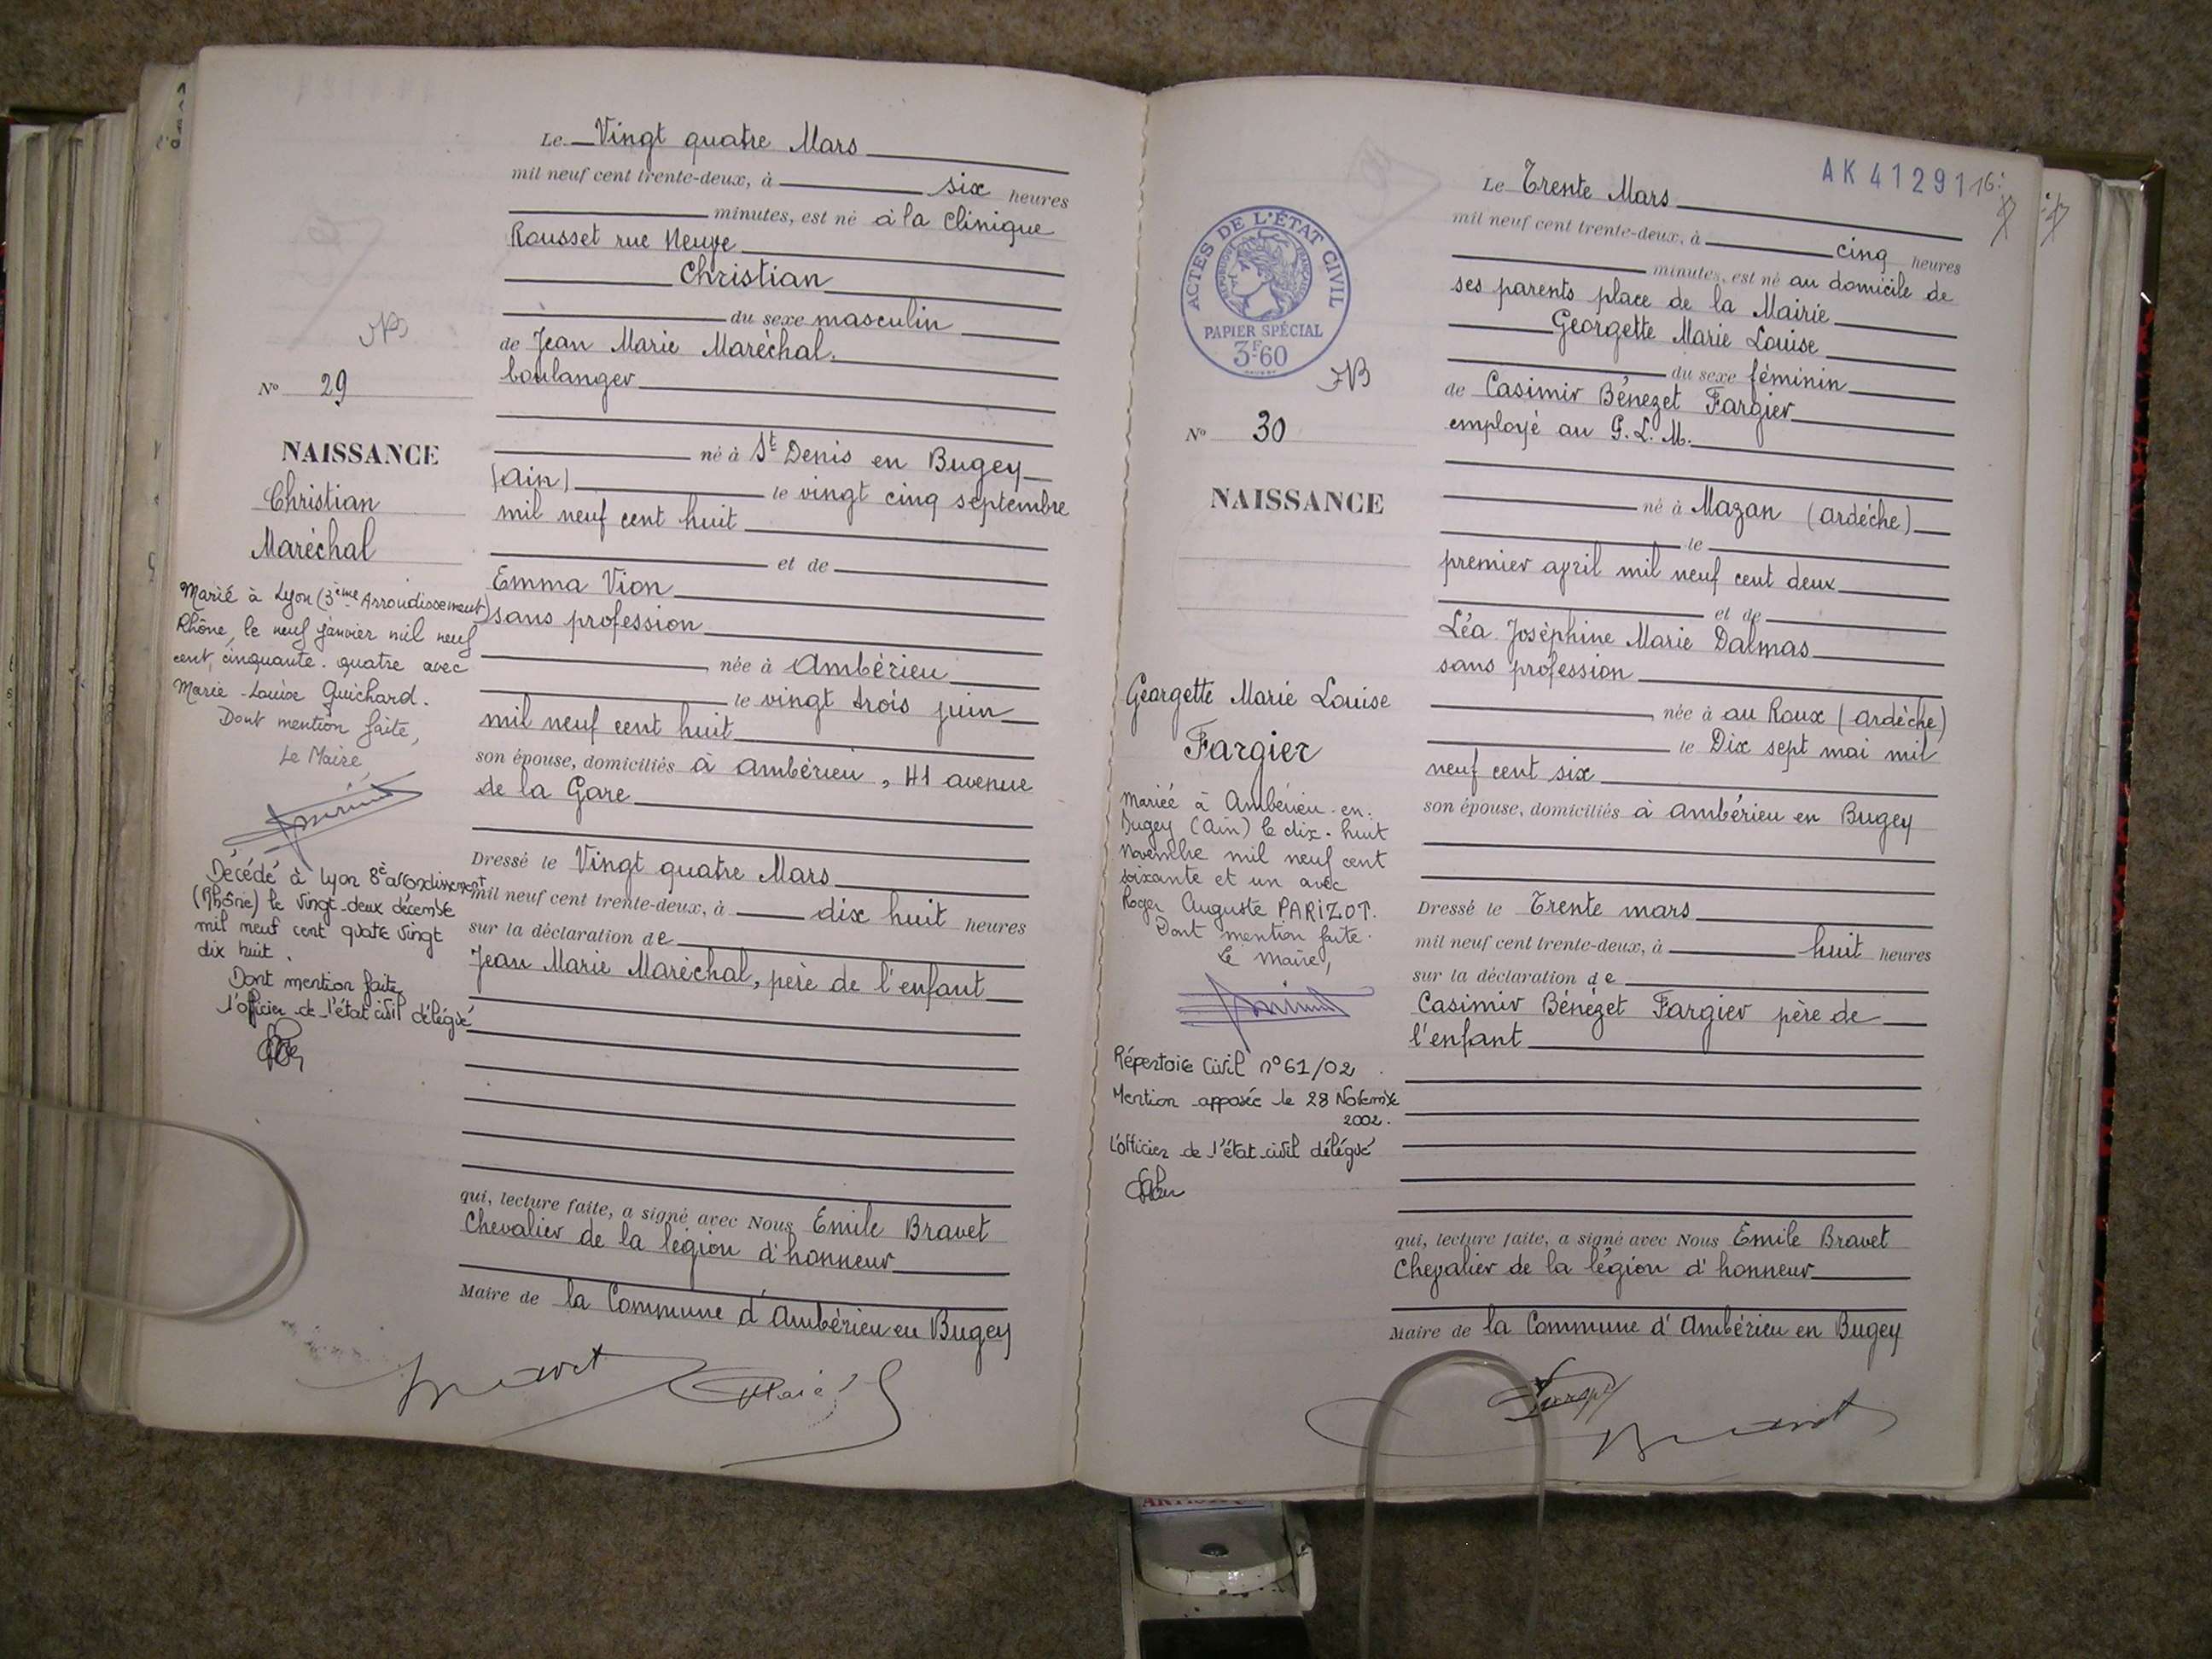 Le Vingt quatre Mars
mil neuf cent trente-deux, à six heures
minutes, est né à la Clinique
Rousset rue Neuve
Christian
du sexe masculin
de Jean Marie Maréchal,
boulanger
né à St Denis en Bugey
(Ain) le vingt cinq septembre
mil neuf cent huit
et de
Emma Vion
sans profession
née à Ambérieu
le vingt trois juin
mil neuf cent huit
son épouse, domiciliés à Ambérieu, 41 avenue
de la Gare
Dressé le Vingt quatre Mars
mil neuf cent trente-deux, à dix huit heures
sur la déclaration de
Jean Marie Maréchal, père de l'enfant
qui, lecture faite, a signé avec Nous Emile Bravet
Chevalier de la légion d'honneur
Maire de la Commune d'Ambérieu en Bugey
No 29
NAISSANCE
Christian
Maréchal
Marié à Lyon (3ème Arrondissement)
Rhône, le neuf janvier mil neuf
cent cinquante-quatre avec
Marie-Louise Guichard.
Dont mention faite,
Le Maire,
Décédé à Lyon 8è arrondissement
(Rhône) le vingt-deux décembre
mil neuf cent quatre vingt
dix huit.
Dont mention faite,
l'officier de l'état civil délégué
AK 41291
Le Trente Mars
mil neuf cent trente-deux, à cinq heures
minutes, est né au domicile de
ses parents place de la Mairie
Georgette Marie Louise
du sexe féminin
de Casimir Bénezet Fargier
employé au P.L.M.
né à Mazan (Ardèche)
le
premier april mil neuf cent deux
et de
Léa Joséphine Marie Dalmas
sans profession
née à au Roux (Ardèche)
le Dix sept mai mil
neuf cent six
son épouse, domiciliés à Ambérieu en Bugey
Dressé le Trente mars
mil neuf cent trente-deux, à huit heures
sur la déclaration de
Casimir Bénézet Fargier père de
l'enfant
qui, lecture faite, a signé avec Nous Emile Bravet
Chevalier de la légion d'honneur
Maire de la Commune d'Ambérieu en Bugey
ACTES DE L'ÉTAT CIVIL
RÉPUBLIQUE FRANÇAISE
PAPIER SPÉCIAL
3F60
No 30
NAISSANCE
Georgette Marie Louise
Fargier
Mariée à Ambérieu-en-
Bugey (Ain) le dix-huit
Novembre mil neuf cent
soixante et un avec
Roger Auguste PARIZOT.
Dont mention faite.
Le Maire,
Répertoire Civil n°61/02
Mention apposée le 28 Novembre
2002.
L'officier de l'état civil délégué